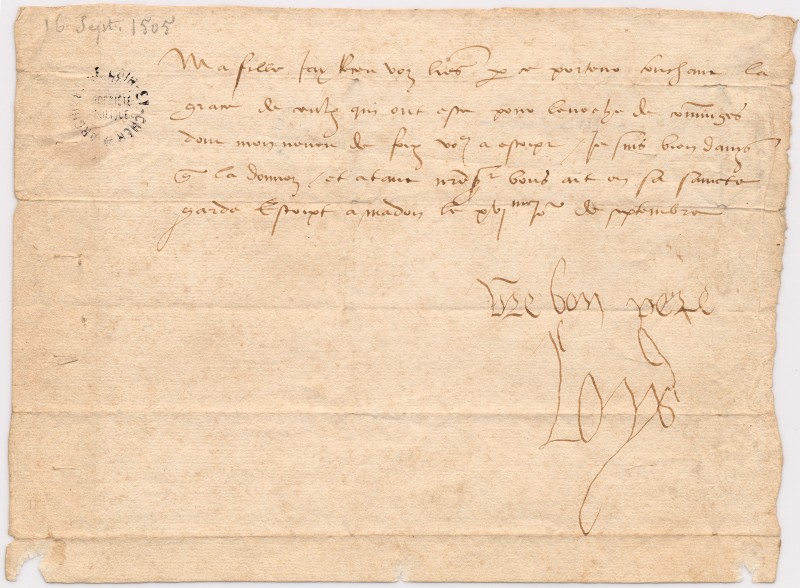 16 Sept. 1505
Ma fille Jay Receu voz lres p ce porteur touchant la
grace de ceulx qui ont este pour levesche de
dont mon nepveu de foix voz a escript / Je suis bien dadvis
q la donnez / et atant nre sr vous ait en sa saincte
garde Escript a madon le xvj me jor de septembre
vre bon pere
Loys